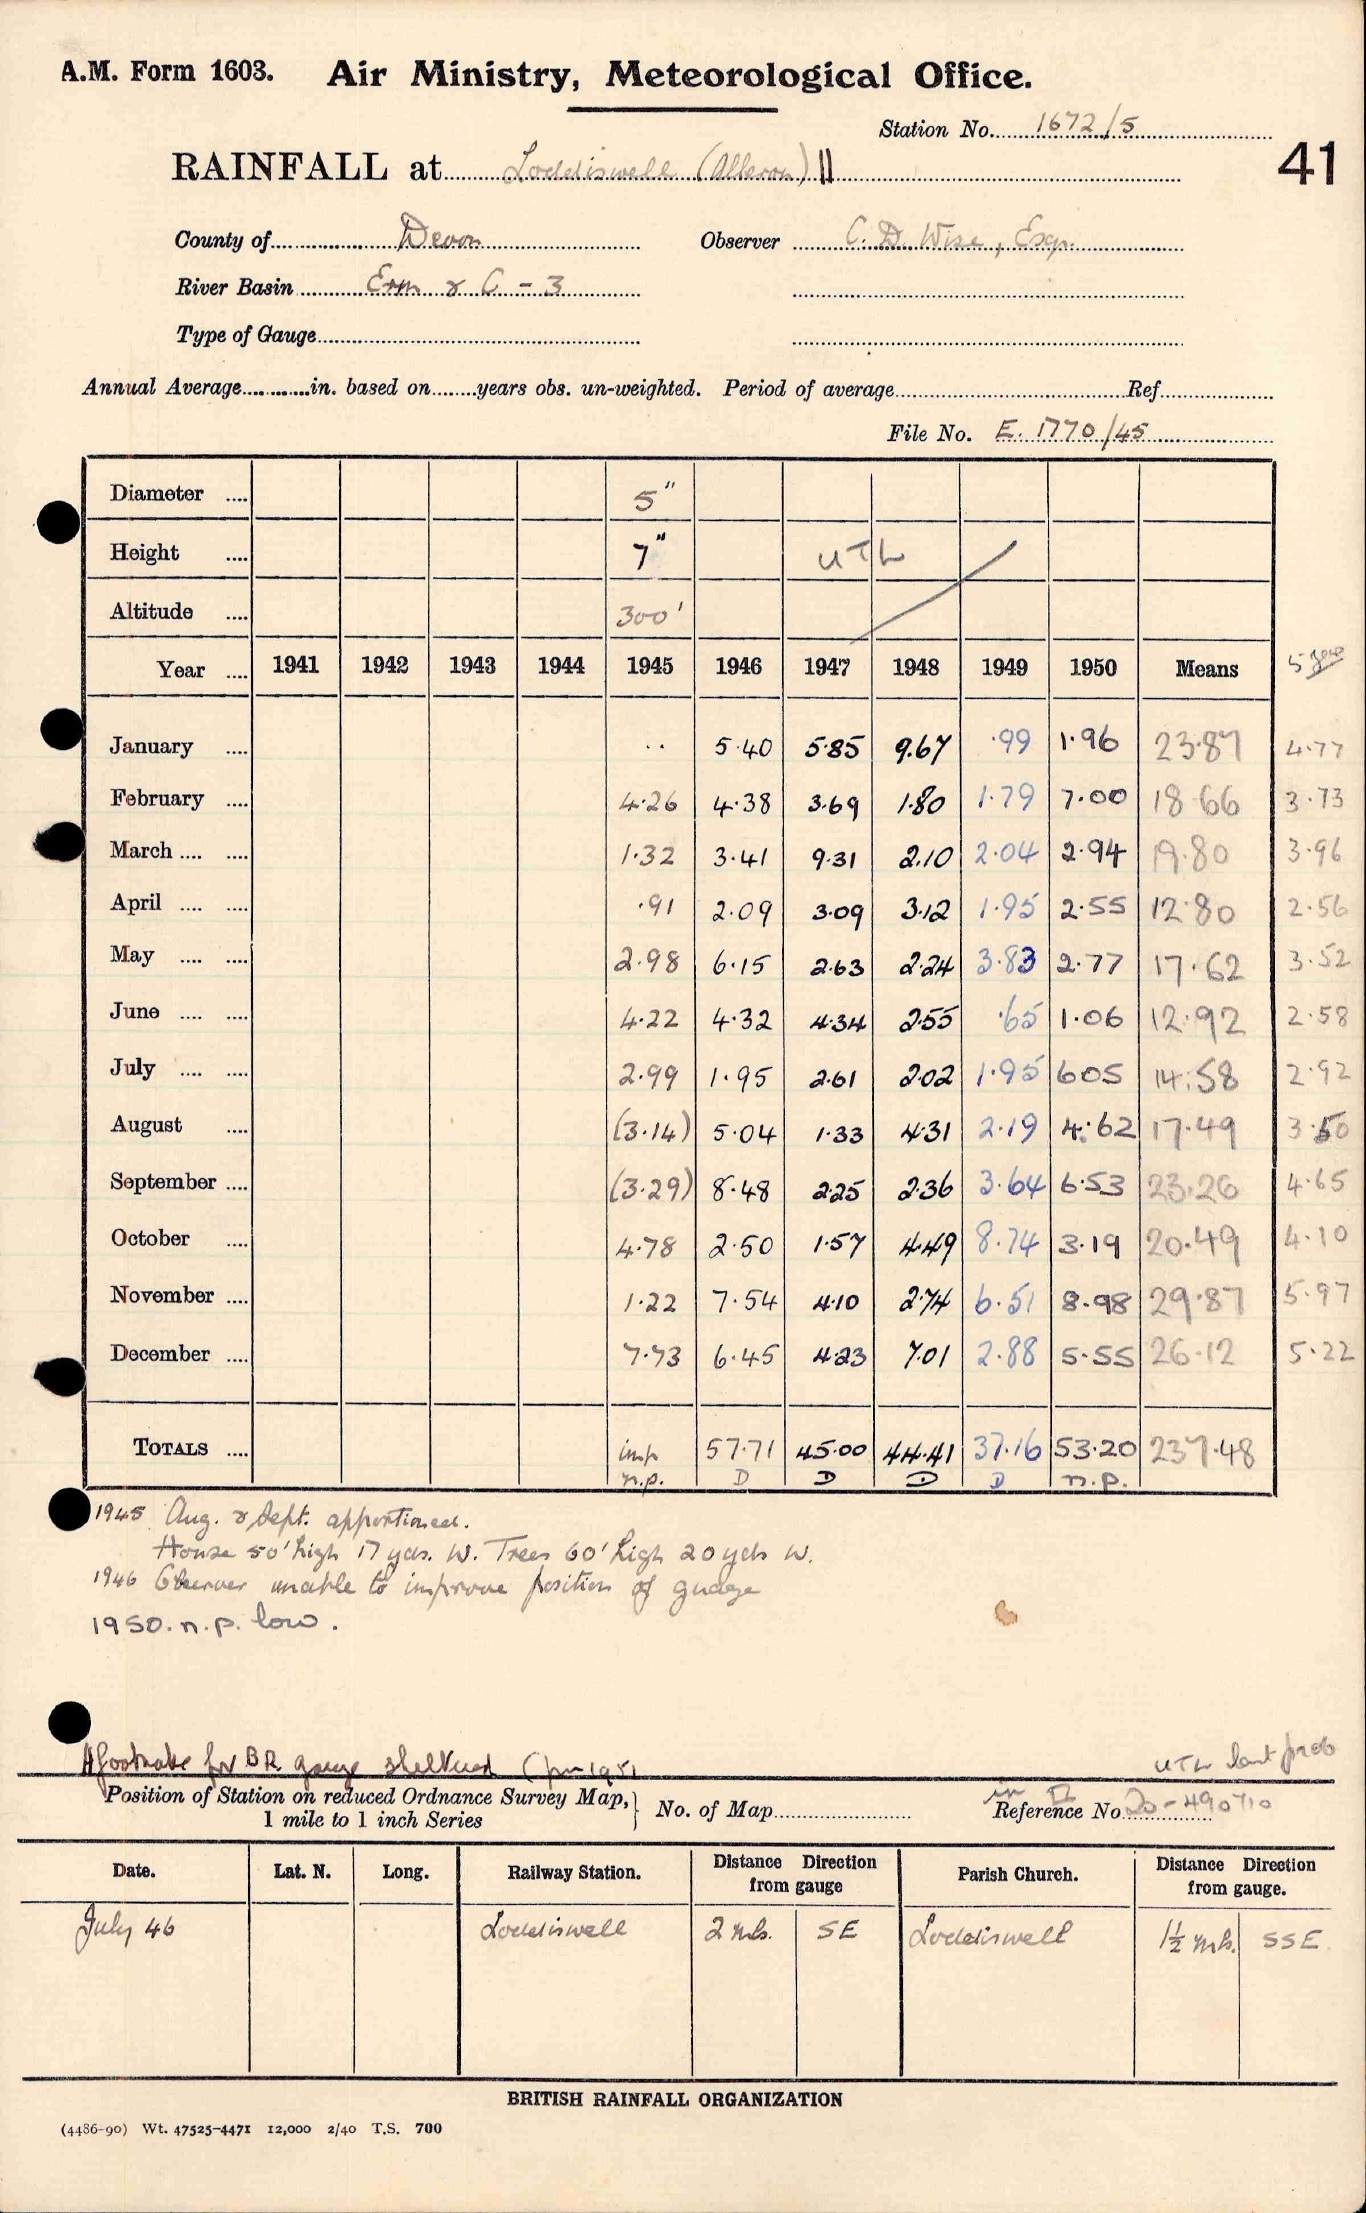 A.M. Form 1603. Air Ministry, Meteorological Office.
Station No. 1672/5
RAINFALL at Loddiswell (Alleron) II 41
County of Devon Observer C. D. Wise, Esqr.
River Basin Erm & C - 3
Type of Gauge
Annual Average in. based on years obs. un-weighted. Period of average Ref
File No. E. 1770/45
Diameter .... 5"
Height .... 7" UTL
Altitude .... 300'
Year .... 1941 1942 1943 1944 1945 1946 1947 1948 1949 1950 Means 5 year
January .... .. 5.40 5.85 9.67 .99 1.96 23.87 4.77
February .... 4.26 4.38 3.69 1.80 1.79 7.00 18.66 3.73
March .... .... 1.32 3.41 9.31 2.10 2.04 2.94 19.80 3.96
April .... .... .91 2.09 3.09 3.12 1.95 2.55 12.80 2.56
May .... .... 2.98 6.15 2.63 2.24 3.83 2.77 17.62 3.52
June .... .... 4.22 4.32 4.34 2.55 .65 1.06 12.92 2.58
July .... .... 2.99 1.95 2.61 2.02 1.95 6.05 14.58 2.92
August .... (3.14) 5.04 1.33 4.31 2.19 4.62 17.49 3.50
September .... (3.29) 8.48 2.25 2.36 3.64 6.53 23.26 4.65
October .... 4.78 2.50 1.57 4.49 8.74 3.19 20.49 4.10
November .... 1.22 7.54 4.10 2.74 6.51 8.98 29.87 5.97
December .... 7.73 6.45 4.23 7.01 2.88 5.55 26.12 5.22
TOTALS .... imp 57.71 45.00 44.41 37.16 53.20 237.48
n.p. D D D D n.p.
1945 Aug. & Sept. apportioned.
House 50' high 17 yds. W. Trees 60' high 20 yds W.
1946 Observer unable to improve position of guage
1950. n.p. low.
footnote for B.R. gauge sheltered
UTL
Position of Station on reduced Ordnance Survey Map,
1 mile to 1 inch Series
No. of Map
in II
Reference No 20-490710
Date. Lat. N. Long. Railway Station. Distance Direction from gauge Parish Church. Distance Direction from gauge.
July 46 Loddiswell 2 mls. SE Loddiswell 1½ mls. SSE.
BRITISH RAINFALL ORGANIZATION
(4486-90) Wt. 47525-4471 12,000 2/40 T.S. 700